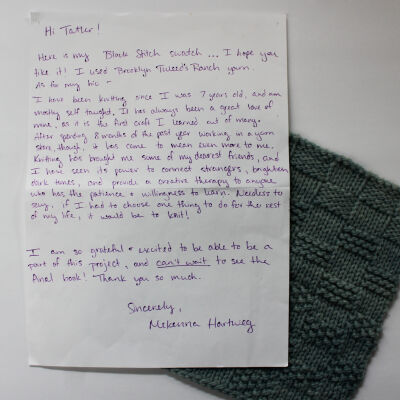 Hi Tatler!
Here is my Block Stitch swatch... I hope you
like it! I used Brooklyn Tweed's Ranch yarn.
As for my bio -
I have been knitting since I was 7 years old, and am
mostly self taught. It has always been a great love of
mine, as it is the first craft I learned out of many.
After spending 8 months of the past year working in a yarn
store, though, it has come to mean even more to me.
Knitting has brought me some of my dearest friends, and
I have seen its power to connect strangers, brighten
dark times, and provide a creative therapy to anyone
who has the patience + willingness to learn. Needless to
say, if I had to choose one thing to do for the rest
of my life, it would be to knit!
I am so grateful + excited to be able to be a
part of this project, and can't wait to see the
final book! Thank you so much.
Sincerely,
McKenna Hartweg